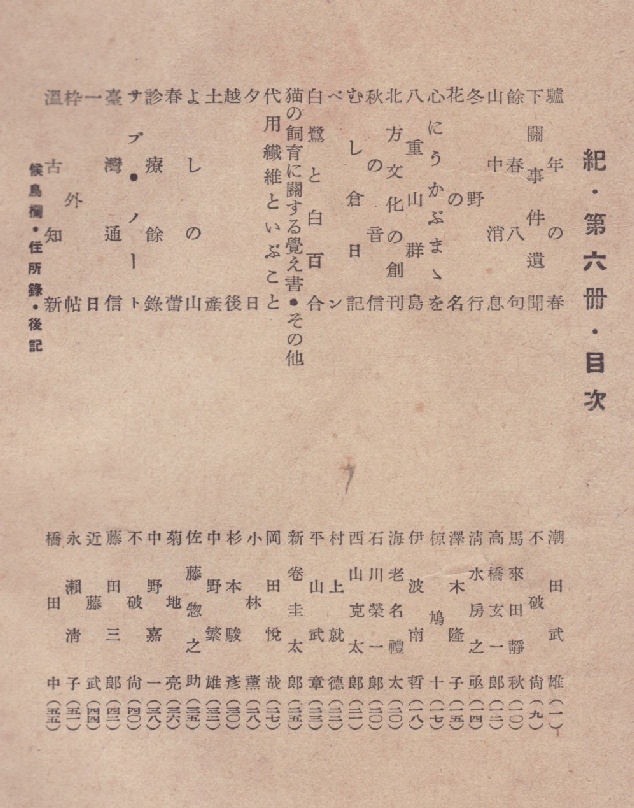 紀・第六冊・目次
驢年の春 潮田武雄(一)
下關事件遺聞 不破尙(九)
餘春八句 馬來田靜秋(一〇)
山中消息 高橋玄一郎(一二)
冬野行 淸水房之丞(一四)
花の名 澤木隆子(一五)
心にうかぶまゝを 椋鳩十(一七)
八重山群島 伊波南哲(一八)
北方文化の創刊 海老名禮太(二〇)
秋の音信 石川榮一郎(二〇)
むし倉日記 西山克太郎(二一)
ペン 村上就德(二二)
白鷺と白百合 平山武章(二三)
猫の飼育に關する覺え書●その他 新卷圭太郎(二五)
代用纖維といふこと 岡田悅哉(二七)
夕日 小林薰(二八)
越後 杉本駿彥(三〇)
土產 中野繁雄(三二)
よしの山 佐藤惣之助(三五)
春蕾 菊地亮(三六)
診療餘錄 中野嘉一(三八)
サブ●ノート 不破尙(四〇)
臺灣通信 藤田三郎(四二)
一日 近藤武(四四)
枠外帖 永瀨淸子(五一)
溫古知新 橋田中(五五)
候鳥欄・住所錄・後記